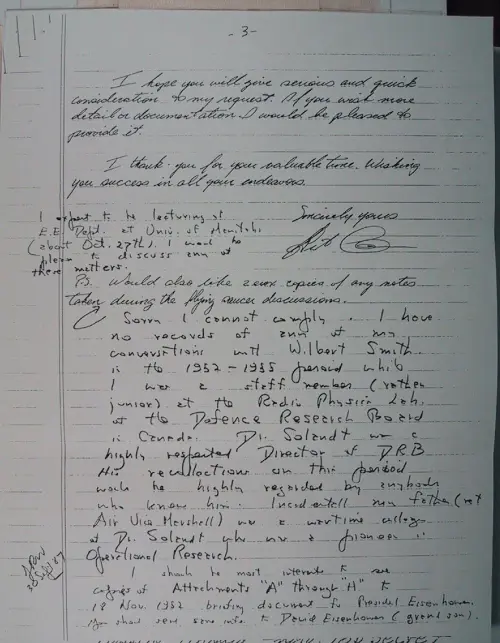 - 3 -
I hope you will give serious and quick
consideration to my request. If you wish more
detail or documentation I would be pleased to
provide it.
I thank you for your valuable time. Wishing
you success in all your endeavors.
Sincerely yours
I expect to be lecturing at
E.E. Dept. at Univ. of Manitoba
(about Oct. 27th). I would be
pleased to discuss any of
these matters.
P.S. Would also like zerox copies of any notes
taken during the flying saucer discussions.
Sorry I cannot comply. I have
no records of any of my
conversations with Wilbert Smith
in the 1952-1955 period while
I was a staff member (rather
junior) at the Radio Physics Lab.
of the Defence Research Board
in Canada. Dr. Solandt was a
highly respected Director of D.R.B
His recollections on this period
would be highly regarded by anybody
who knew him. Incidentally my father (ret
Air Vice Marshall) was a wartime colleague
of Dr. Solandt who was a pioneer in
Operational Research.
I should be most interested to see
copies of Attachments "A" through "H" to
18 Nov. 1952 briefing document to President Eisenhower.
You should send same info to David Eisenhower (grandson).